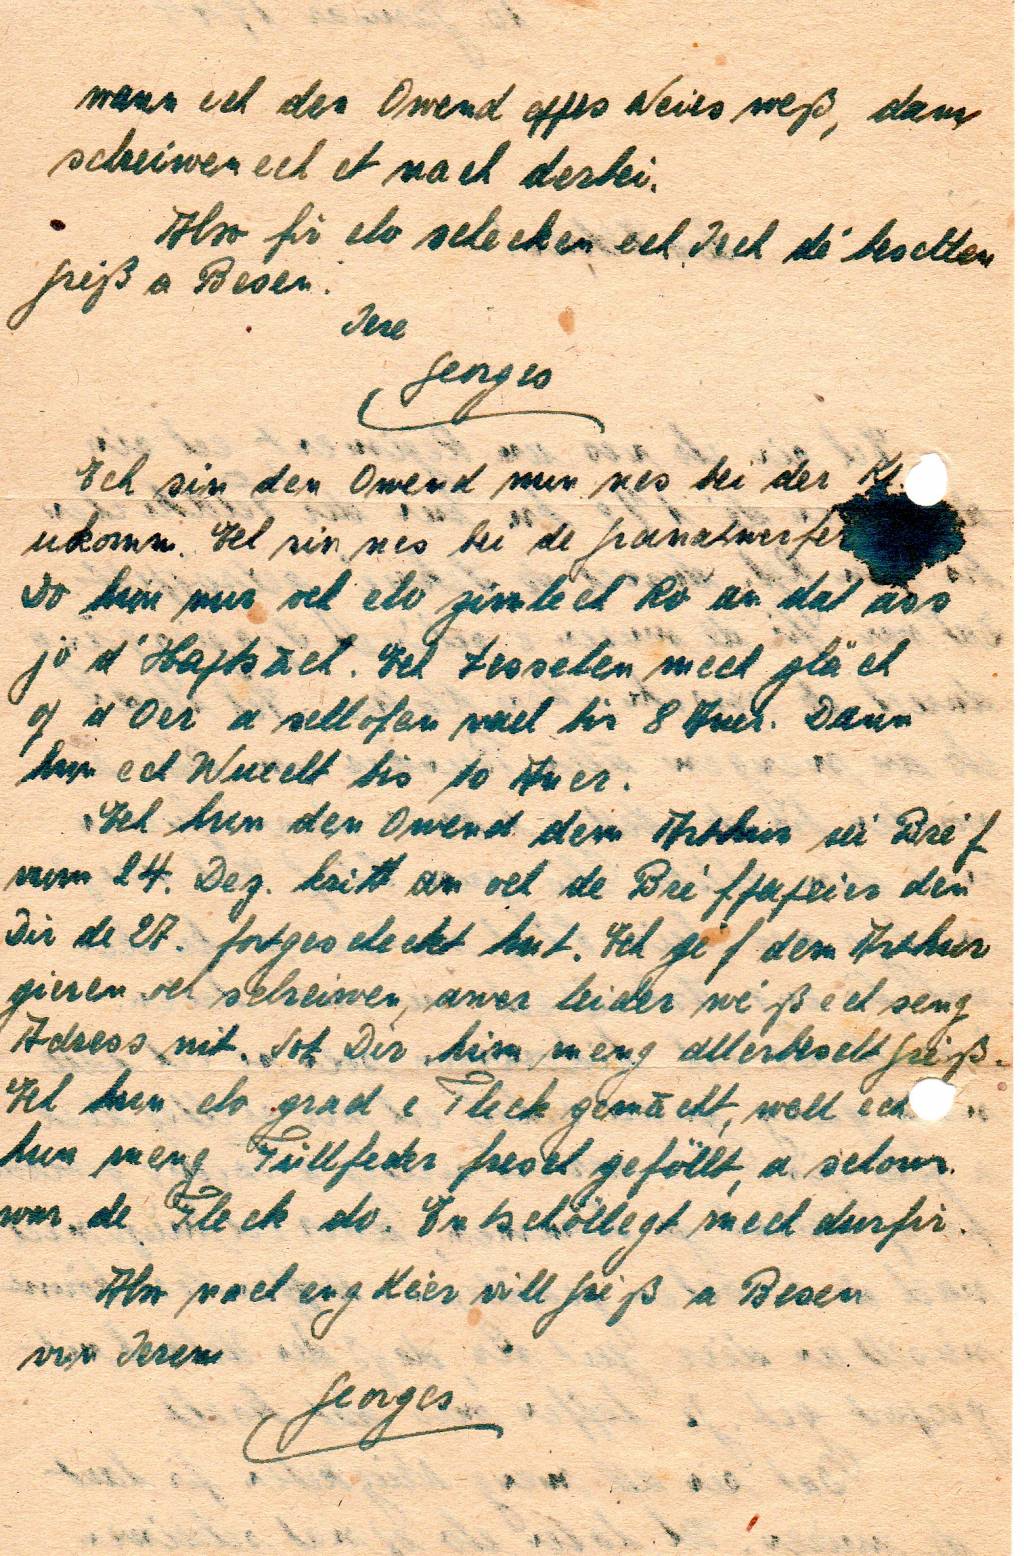 wann ech den Owend eppes Neies weß, dann
schreiwen ech et nach derbei.
Also fir elo schecken ech Iech dé beschten
Greiß a Besen.
Iere
Georges
Ech sin den Owend nun nes bei der K
ukomm. Ech sin nes bei de Granatwerfer
Do hun mir och elo zimlech Ro an dat ass
jo d'Haptsāch. Ech
op d'Oer a schlofen well bis 8 Auer. Dann
hun ech Wuecht bis 10 Auer.
Ech hun den Owend dem Arthur séi Bréf
vum 24. Dez. kritt an och de Bréfpapeier den
Dir de 27. fortgescheckt hut. Ech géf dem Arthur
gieren och schreiwen, awer leider wéß ech seng
Adress nit. Sot Dir him meng allerbescht Gréiß.
Ech hun elo grad e Fleck gemācht, well ech
hun meng Füllfeder fresch geföllt, a schonn
war de Fleck do. Entschöllegt mech durfir.
Also nach eng Kéier vill Gréiß a Besen
vun Ierem
Georges